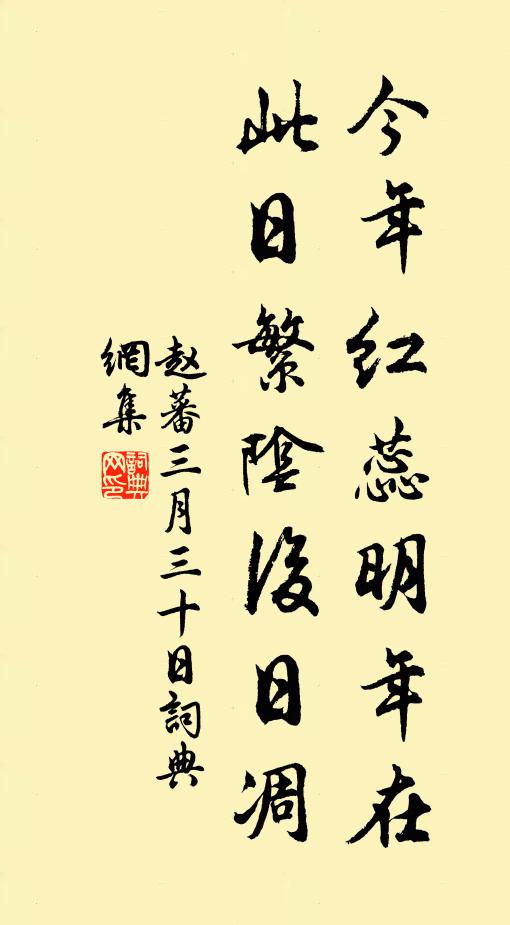 今年红蕊明年在
此日繁陰後日凋
赵蕃三月三十日詞典
網集
詞典網印